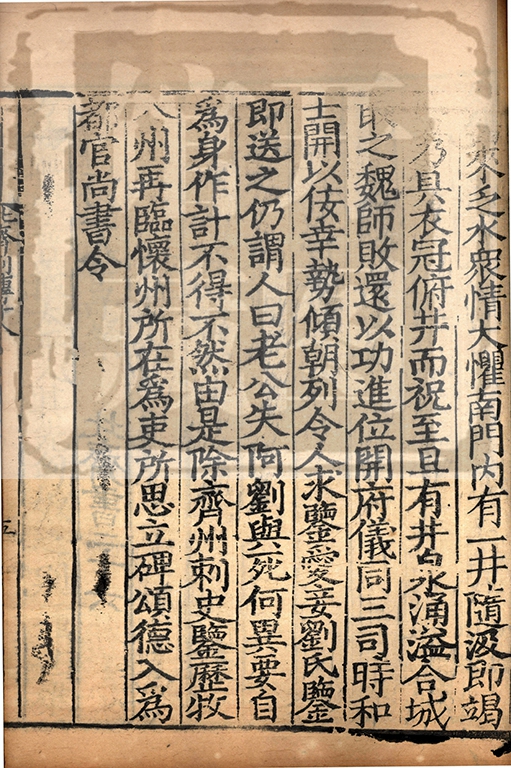 來乏水衆情大懼南門內有一井隨汲即竭
乃具衣冠俯井而祝至旦有井泉涌溢合城
取之魏師敗還以功進位開府儀同三司時和
士開以佞幸勢傾朝列令人求鑒愛妾劉氏鑒
即送之仍謂人曰老公失阿劉與死何異要自
爲身作計不得不然由是除齊州刺史鑒歷牧
八州再臨懷州所在爲吏所思立碑頌德入爲
都官尚書令